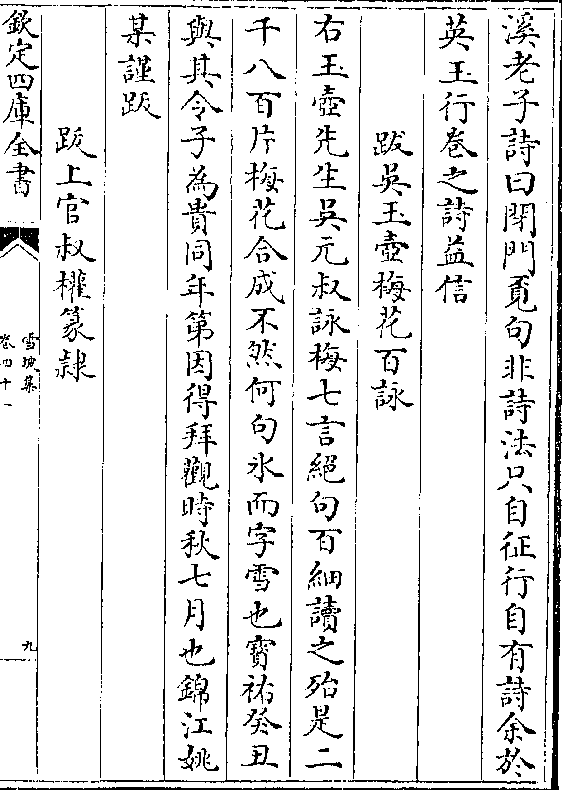 溪老子詩曰閉門覓句非詩法只自征行自有詩余於
英玉行卷之詩益信
跋吳玉壺梅花百詠
右玉壺先生吳元叔詠梅七言絕句百細讀之殆是二
千八百片梅花合成不然何句氷而字雪也寳祐癸丑
與其令子為貴同年第因得拜觀時秋七月也錦江姚
某謹跋
跋上官叔權篆隷
欽定四庫全書
雪坡集
卷四十一
九